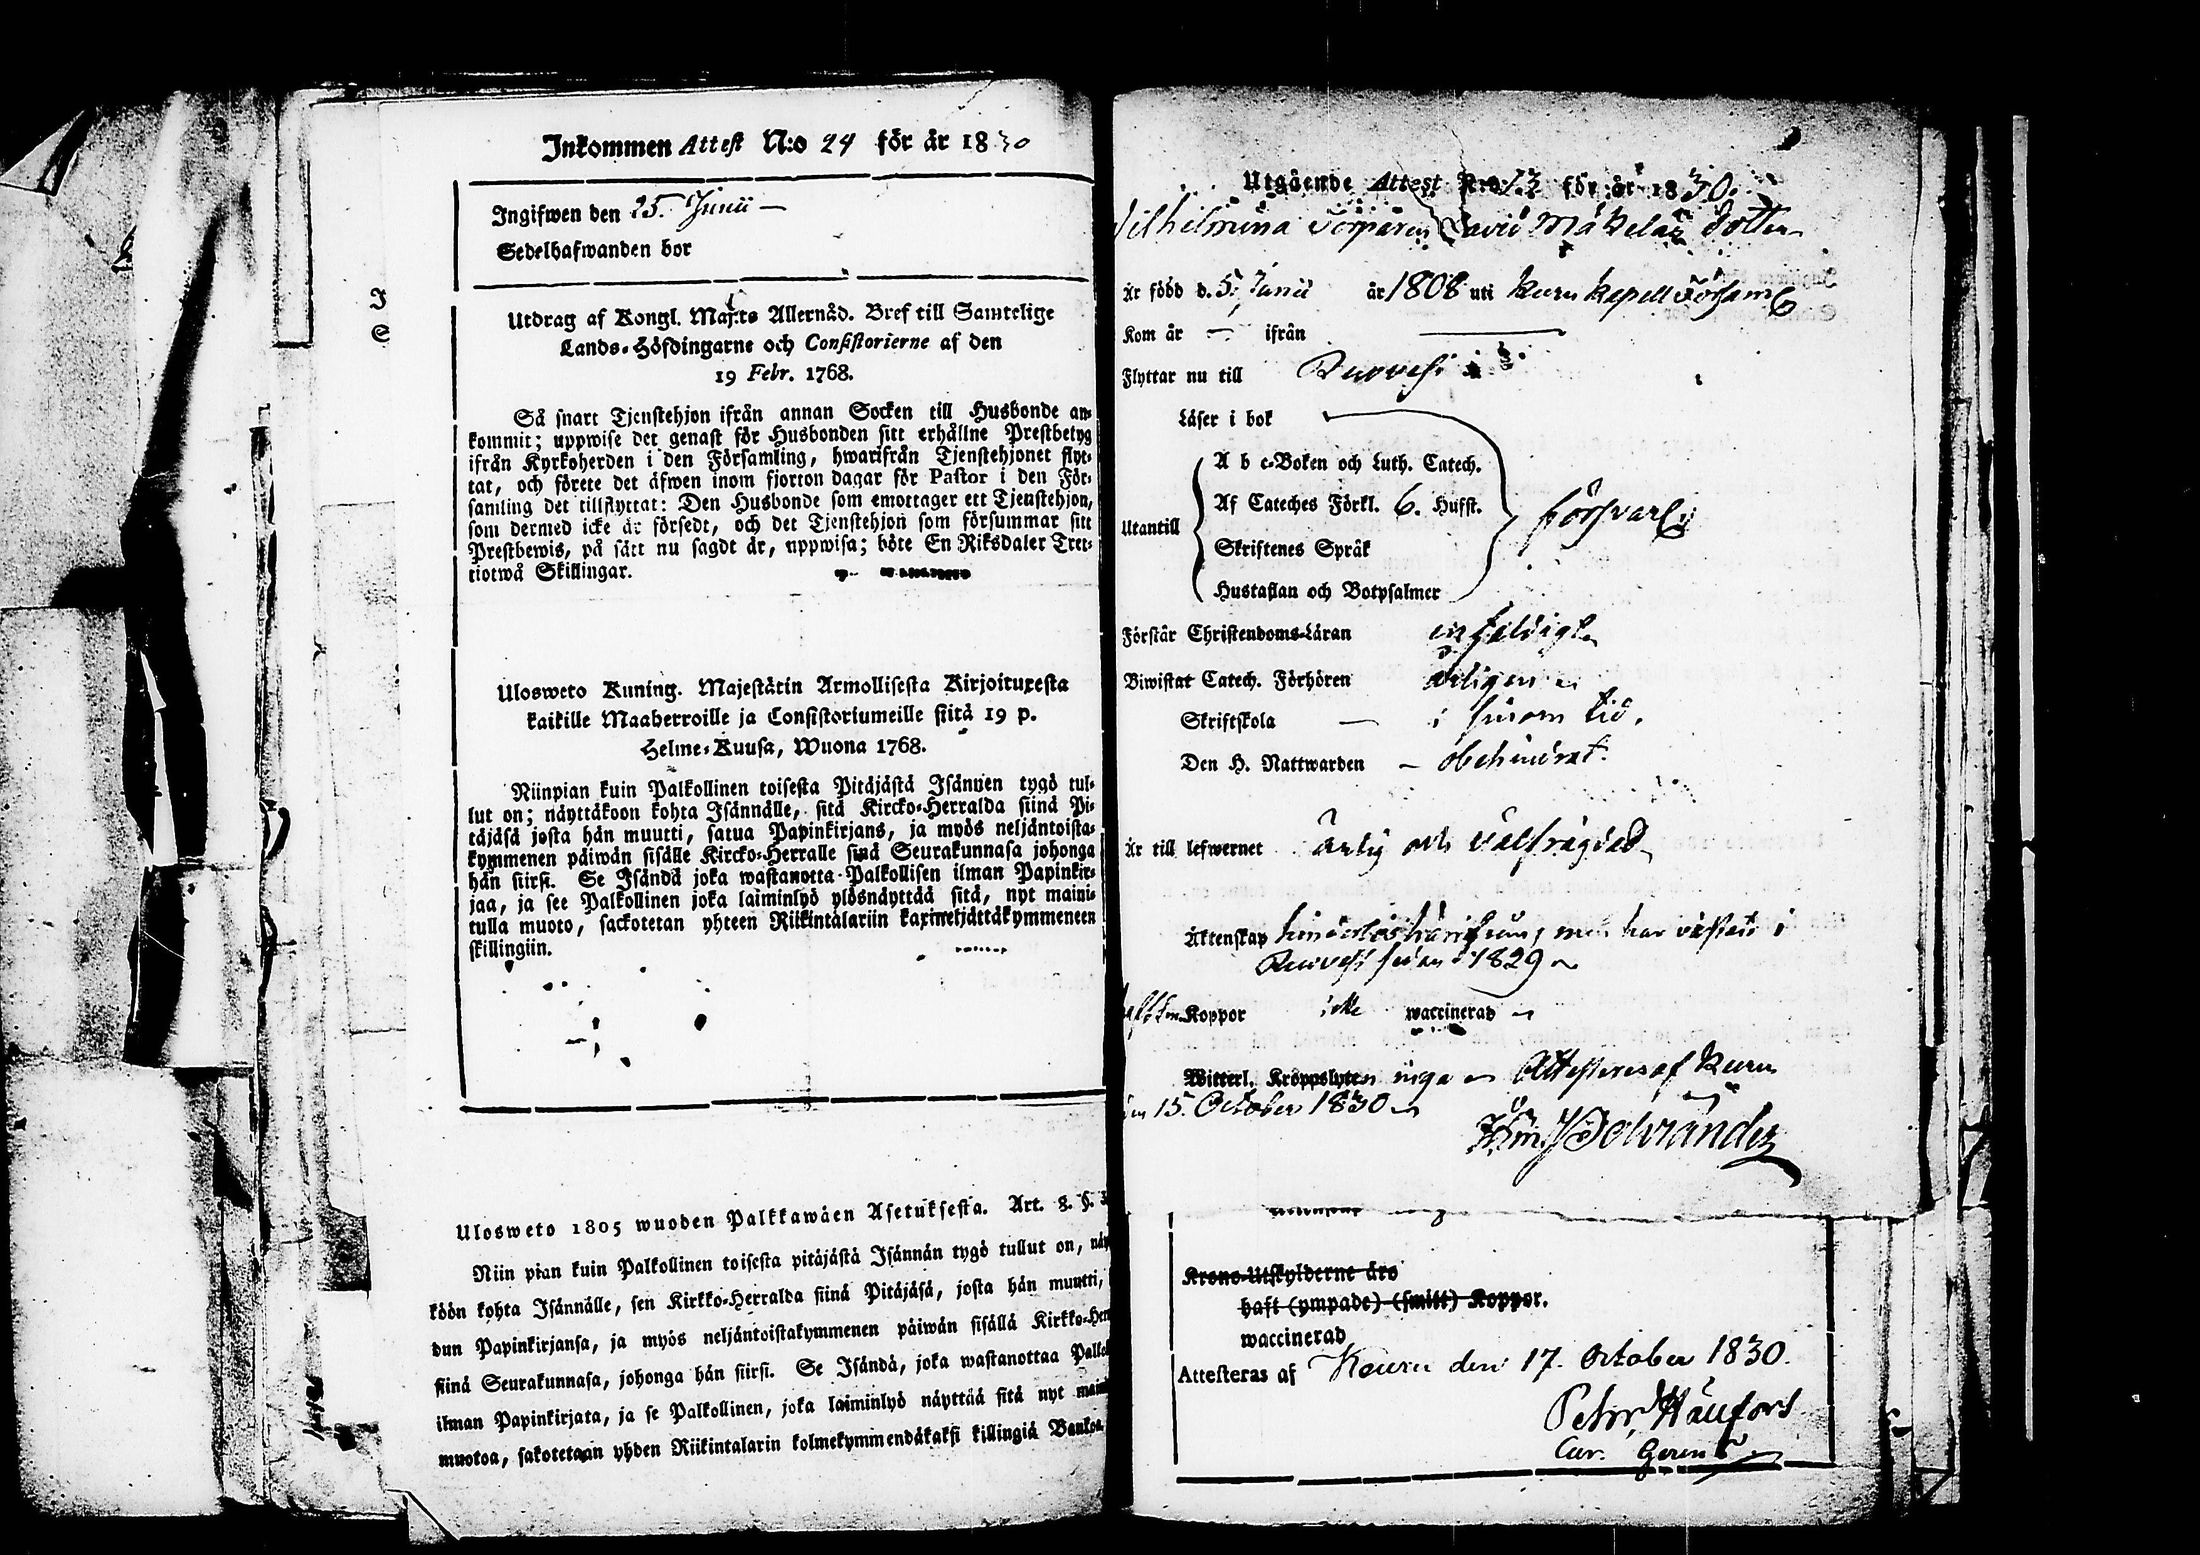 Inkommen Attest N:o 24 för år 1830
Ingifwen den 25. Junii —
Sedelhafwanden bor
Utdrag af Kongl. Maj:ts Allernåd. Bref till Samtelige
Lands-Höfdingarne och Consistorierne af den
19 Febr. 1768.
Så snart Tjenstehjon ifrån annan Socken till Husbonde an-
kommit; uppwise det genast för Husbonden sitt erhållne Prestbetyg
ifrån Kyrkoherden i den Församling, hwarifrån Tjenstehjonet flyt-
tat, och förete det äfwen inom fjorton dagar för Pastor i den För-
samling det tillflyttat: Den Husbonde som emottager ett Tjenstehjon,
som dermed icke är försedt, och det Tjenstehjon som försummar sitt
Prestbewis, på sätt nu sagdt är, uppwisa; böte En Riksdaler Tret-
tiotwå Skillingar.
Ulosweto Kuning. Majestätin Armollisesta Kirjoituxesta
kaikille Maaherroille ja Consistoriumeille siitä 19 p.
Helme-Kuusa, Wuona 1768.
Niinpian kuin Palkollinen toisesta Pitäjästä Isännen tygö tul-
lut on; näyttäkoon kohta Isännälle, sitä Kircko-Herralda siinä Pi-
täjäsä josta hän muutti, satua Papinkirjans, ja myös neljäntoista-
kymmenen päiwän sisälle Kircko-Herralle siinä Seurakunnasa johonga
hän siirsi. Se Isändä joka wastanotta Palkollisen ilman Papinkir-
jaa, ja see Palkollinen joka laiminlyö ylösnäyttää sitä, nyt maini-
tulla muoto, sackotetan yhteen Riikintalariin kaxineljättäkymmeneen
skillingiin.
Ulosweto 1805 wuoden Palkkawäen Asetuksesta. Art. 8. §. 3
Niin pian kuin Palkollinen toisesta pitäjästä Isännän tygö tullut on, näy
köön kohta Isännälle, sen Kirkko-Herralda siinä Pitäjäsä, josta hän muutti,
dun Papinkirjansa, ja myös neljäntoistakymmenen päiwän sisällä Kirkko-Her
siinä Seurakunnasa, johonga hän siirsi. Se Isändä, joka wastanottaa Palko
ilman Papinkirjata, ja se Palkollinen, joka laiminlyö näyttää sitä nyt maini
muotoa, sakotetaan yhden Riikintalarin kolmekymmendäkaksi killingiä Banko
Utgående Attest N:o 13 för år 1830.
Vilhelmina Torparen David Mäkeläs dotter
Är född d. 5. Junii år 1808 uti Kuru kapell Församl
Kom år — ifrån —
Flyttar nu till Ruovesi
Läser i bok
A b c-Boken och Luth. Catech.
Af Cateches Förkl. 6. Hufst.
Utantill
försvarl.
Skriftenes Språk
Hustaflan och Botpsalmer
Förstår Christendoms-Läran enfaldigt
Biwistat Catech. Förhören årligen
Skriftskola — i sinom tid.
Den H. Nattwarden — obehindrat.
Är till lefwernet ärlig och välfrägdad
Äktenskap hinderslös härifrån, men har vistats i
Ruovesi sedan 1829
haft Koppor icke waccinerad
Witterl. Kroppslyten inga Attesteras af Kuru
den 15. October 1830
Krono-Utskylderne äro
haft (ympade) (smitt) Koppor.
waccinerad
Attesteras af Keuru den 17. October 1830.